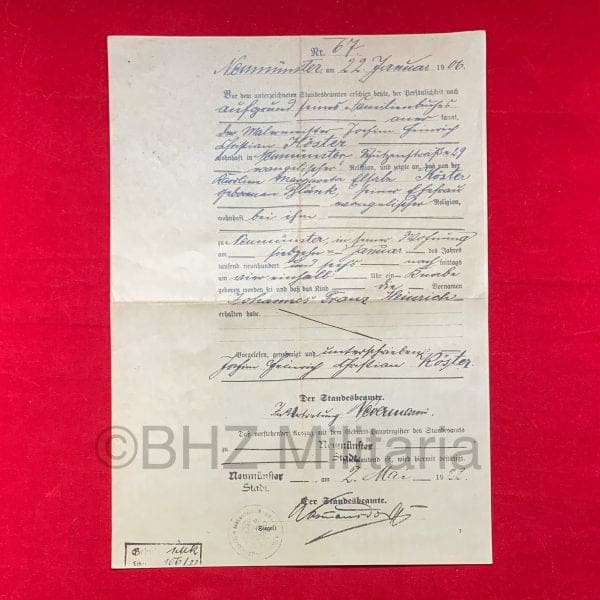 Nr. 67
Neumünster am 22. Januar 1906.
Vor dem unterzeichneten Standesbeamten erschien heute, der Persönlichkeit nach
aufgrund seines Familienbuches
anerkannt,
der Malermeister Jochim Heinrich
Christian Köster
wohnhaft in Neumünster Schützenstraße 29
evangelischer Religion, und zeigte an, daß von der
Karoline Margareta Elsabe Köster
geborenen Blunk seiner Ehefrau
evangelischer Religion,
wohnhaft bei ihm
zu Neumünster, in seiner Wohnung
am siebzehnten Januar des Jahres
tausend neunhundert und sechs nachmittags
um vier einhalb Uhr ein Knabe
geboren worden sei und daß das Kind die Vornamen
Johannes Franz Heinrich
erhalten habe.
Vorgelesen, genehmigt und unterschrieben
Jochim Heinrich Christian Köster.
Der Standesbeamte.
In Vertretung
Daß vorstehender Auszug mit dem Geburts-Hauptregister des Standesamts
zu Neumünster
Stadt gleichlautend ist, wird hiermit bestätigt.
Neumünster
Stadt, am 2. Mai 1922.
Der Standesbeamte.
(Siegel)
©BHZ Militaria